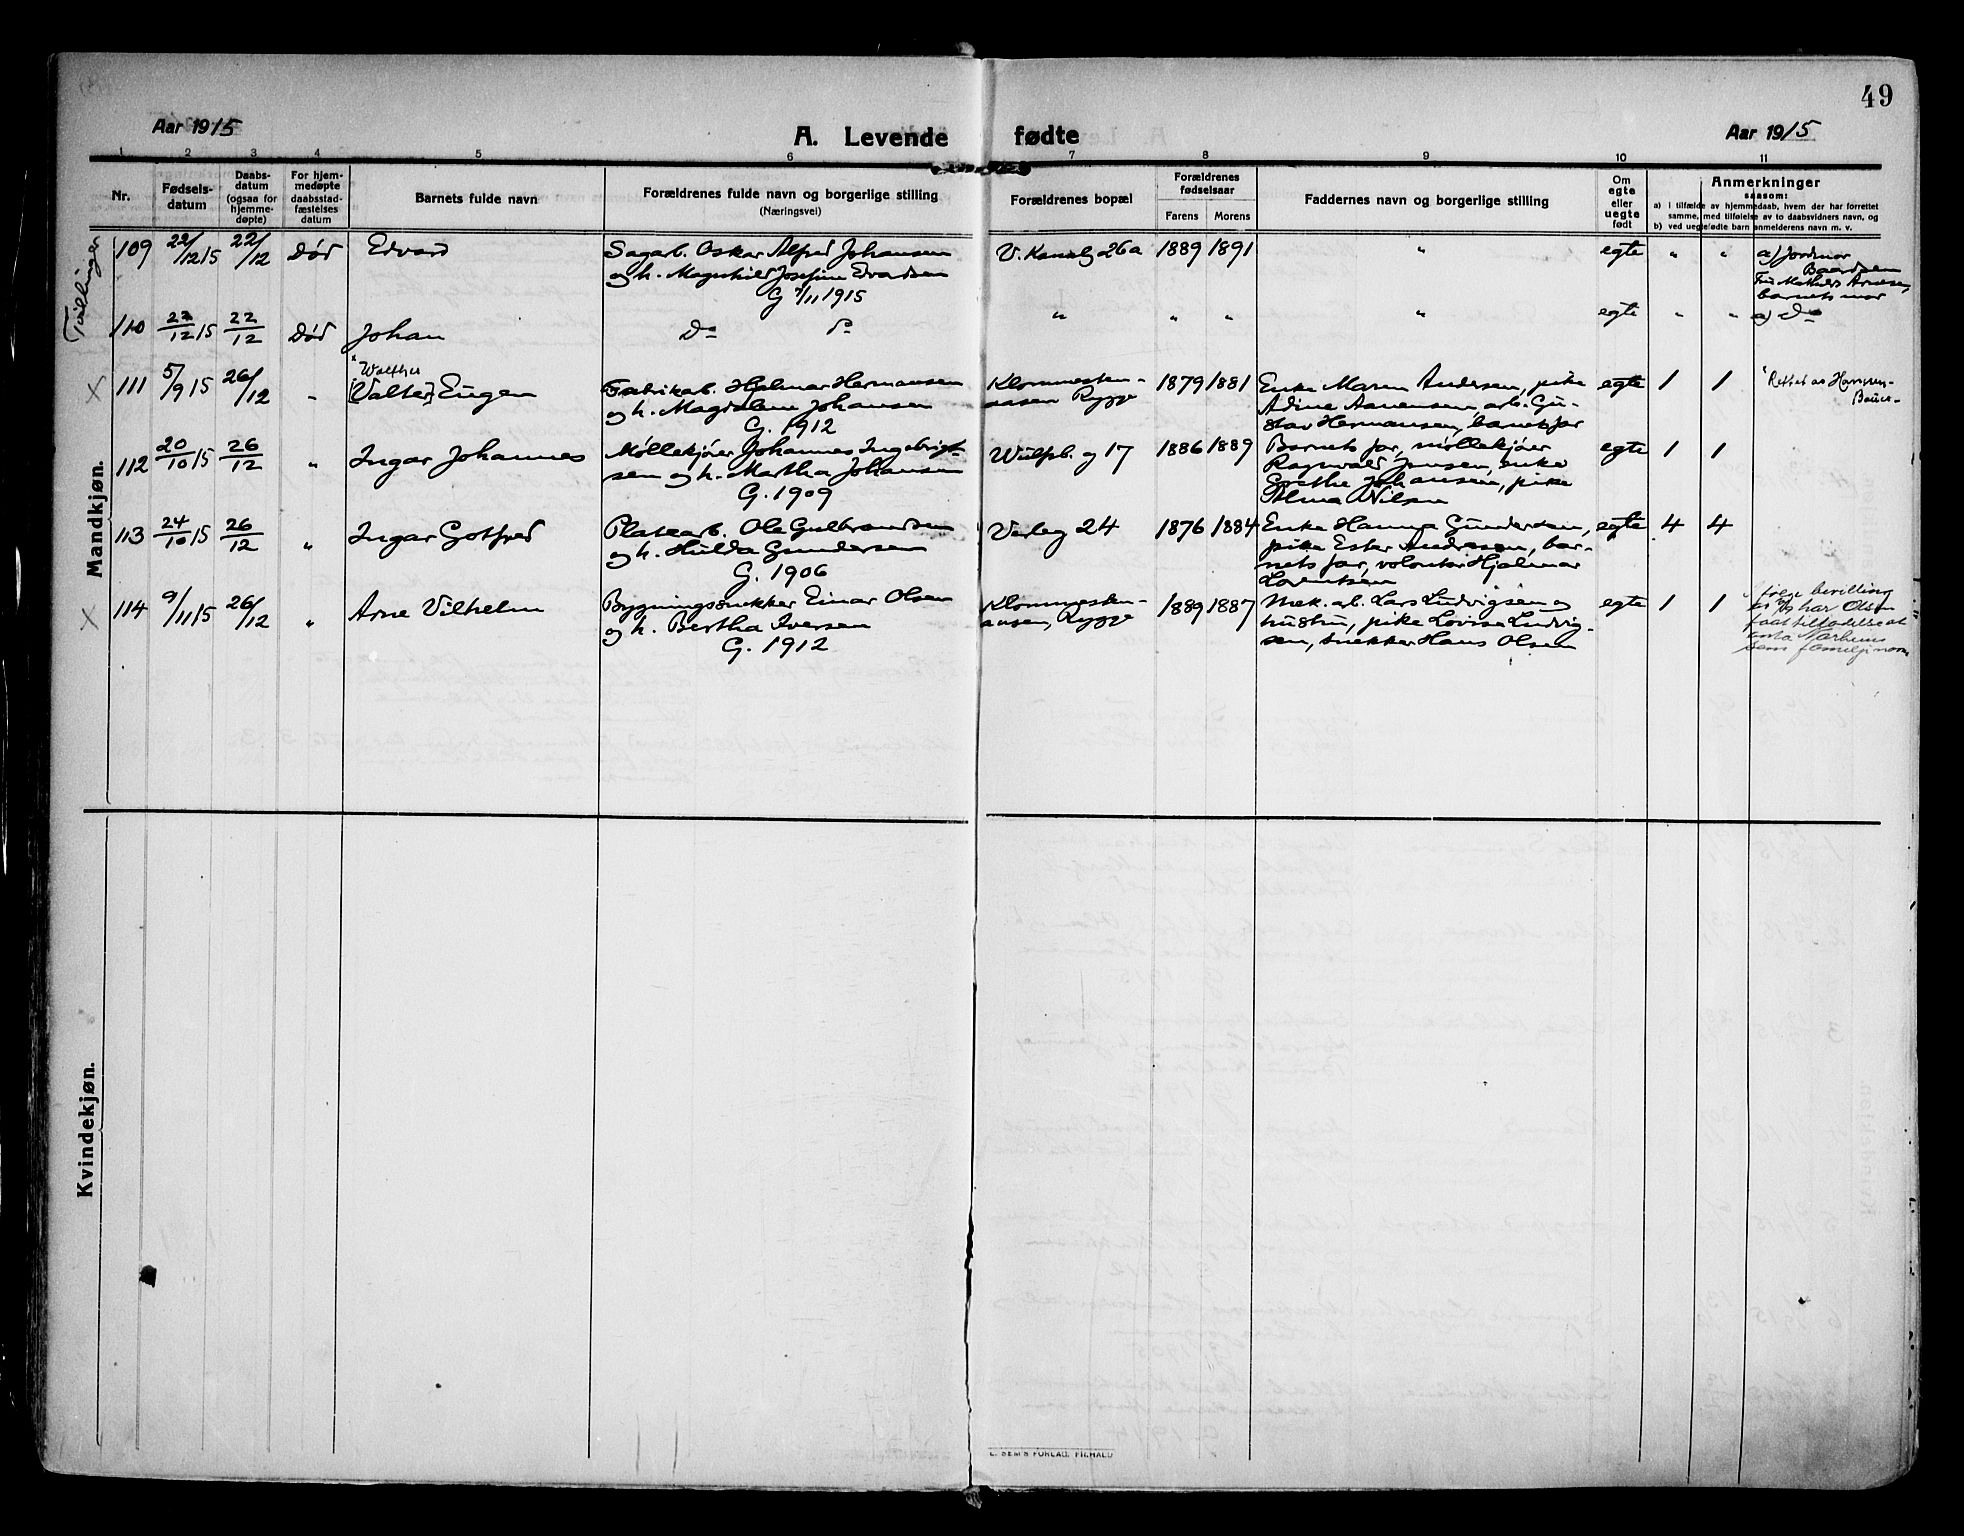 49
Aar 1915
A. Levende fødte
Aar 1915
1 2 3 4 5 6 7 8 9 10 11
Nr.
Fødsels-
datum
Daabs-
datum
(ogsaa for
hjemme-
døpte)
For hjem-
medøpte
daabsstad-
fæstelses
datum
Barnets fulde navn
Forældrenes fulde navn og borgerlige stilling
(Næringsvei)
Forældrenes bopæl
Forældrenes
fødselsaar
Farens Morens
Faddernes navn og borgerlige stilling
Om
egte
eller
uegte
født
Anmerkninger
saasom:
a) i tilfælde av hjemmedaab, hvem der har forrettet
samme, med tilføielse av to daabsvidners navn, og
b) ved uegtefødte barn anmelderens navn m. v.
Mandkjøn.
Tvillinger
109 22/12 15 22/12 Død Edvard
Sagarb. Oskar Alfred Johansen
og h. Magnhild Josefine
G 7/11 1915
V. Kanalg 26a 1889 1891 " egte " "
a) Jordmor
Baardsen
Fru Mathilde
barnets mor
110 22/12 15 22/12 Død Johan
Do Do
" " " " egte " " a) Do
X 111 5/9 15 26/12 "
Walther
[Valter] Eugen
Fabrikab. Hjalmar Hermansen
og h. Magdalene Johansen
G. 1912
Klommesten-
aasen Rygge
1879 1881
Enke Maren Andersen, pike
Adine Aanensen, arb. Gu-
stav Hermansen, barnets far
egte 1 1
Rettet av
112 20/10 15 26/12 " Ingar Johannes
Møllekjører Johannes Ingebrigt-
sen og h. Martha Johansen
G. 1909
Wulfsb. g 17 1886 1889
Barnets far, møllekjører
Ragnvald Jensen, enke
Grethe Johansen, pike
Alma Nilsen
egte 1 1
113 24/10 15 26/12 " Ingar Gotfred
Platearb. Ole Gulbrandsen
og h. Hulda Gundersen
G. 1906
Verleg 24 1876 1884
Enke Hanna Gundersen,
pike Ester Andresen, bar-
nets far, volontør Hjalmar
Lorentsen
egte 4 4
X 114 9/11 15 26/12 " Arne Vilhelm
Bygningssnekker Einar Olsen
og h. Bertha Iversen
G. 1912
Klommesten-
aasen, Rygge
1889 1887
Mek. arb. Lars Ludvigsen og
hustru, pike Lovise Ludvig-
sen, snekker Hans Olsen
egte 1 1
bevilling
har Olsen
faat tilladelse at
som familjenavn
Kvindekjøn.
E. SEM'S FORLAG, FR.HALD